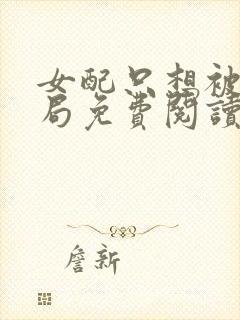 女配只想被
局免費閱讀
詹新